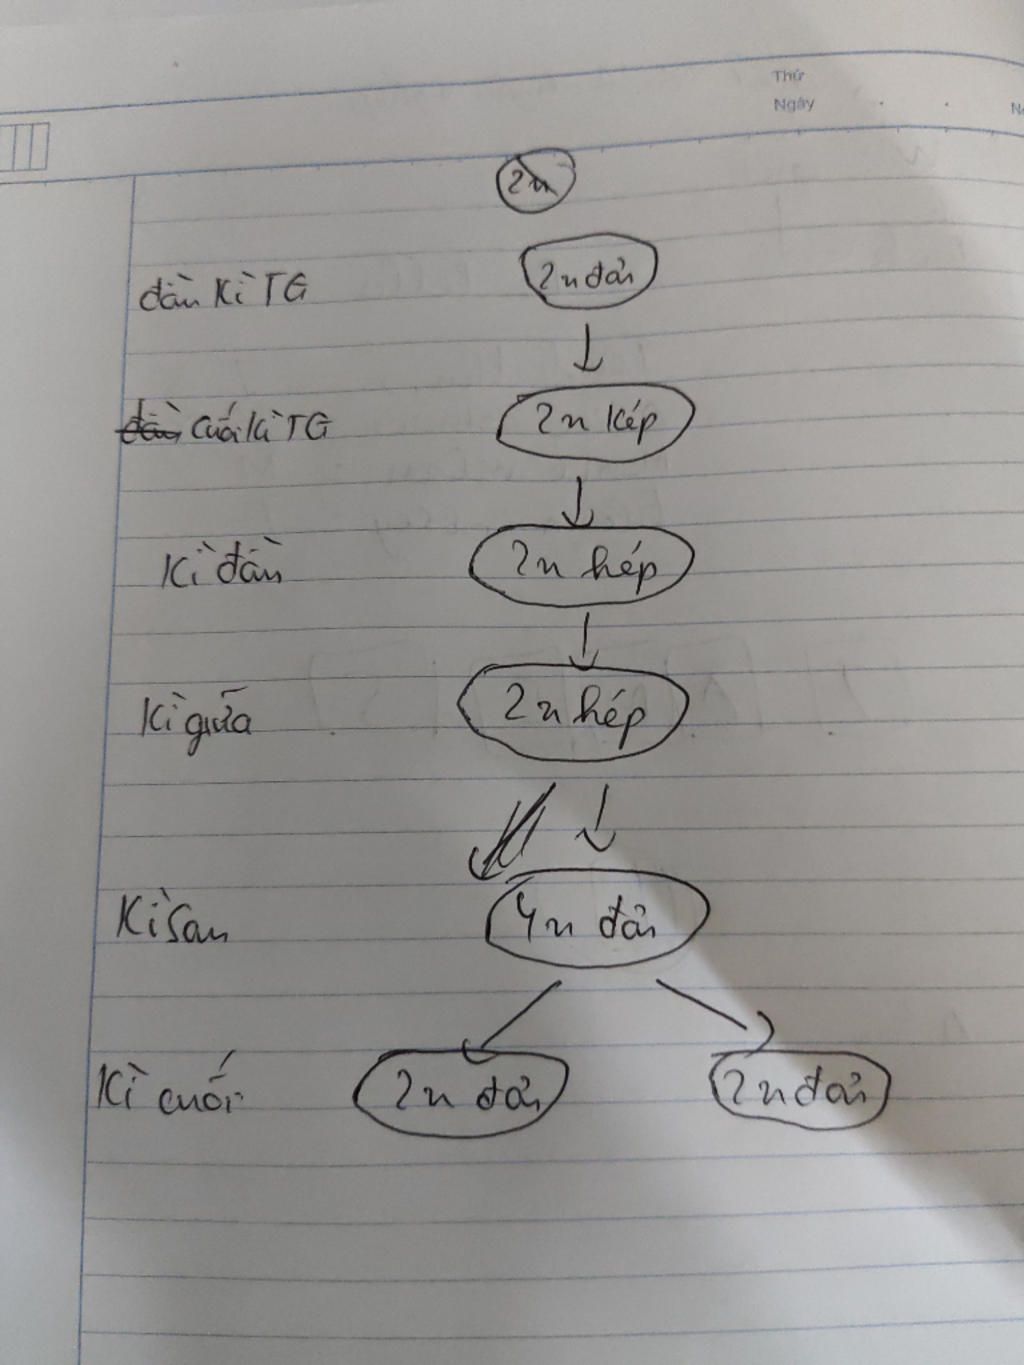 Thứ
Ngày
2n
đầu Kì TG
2n đơn
đầu cuối Kì TG
2n kép
Kì đầu
2n kép
Kì giữa
2n kép
Kì sau
4n đơn
Kì cuối
2n đơn 2n đơn